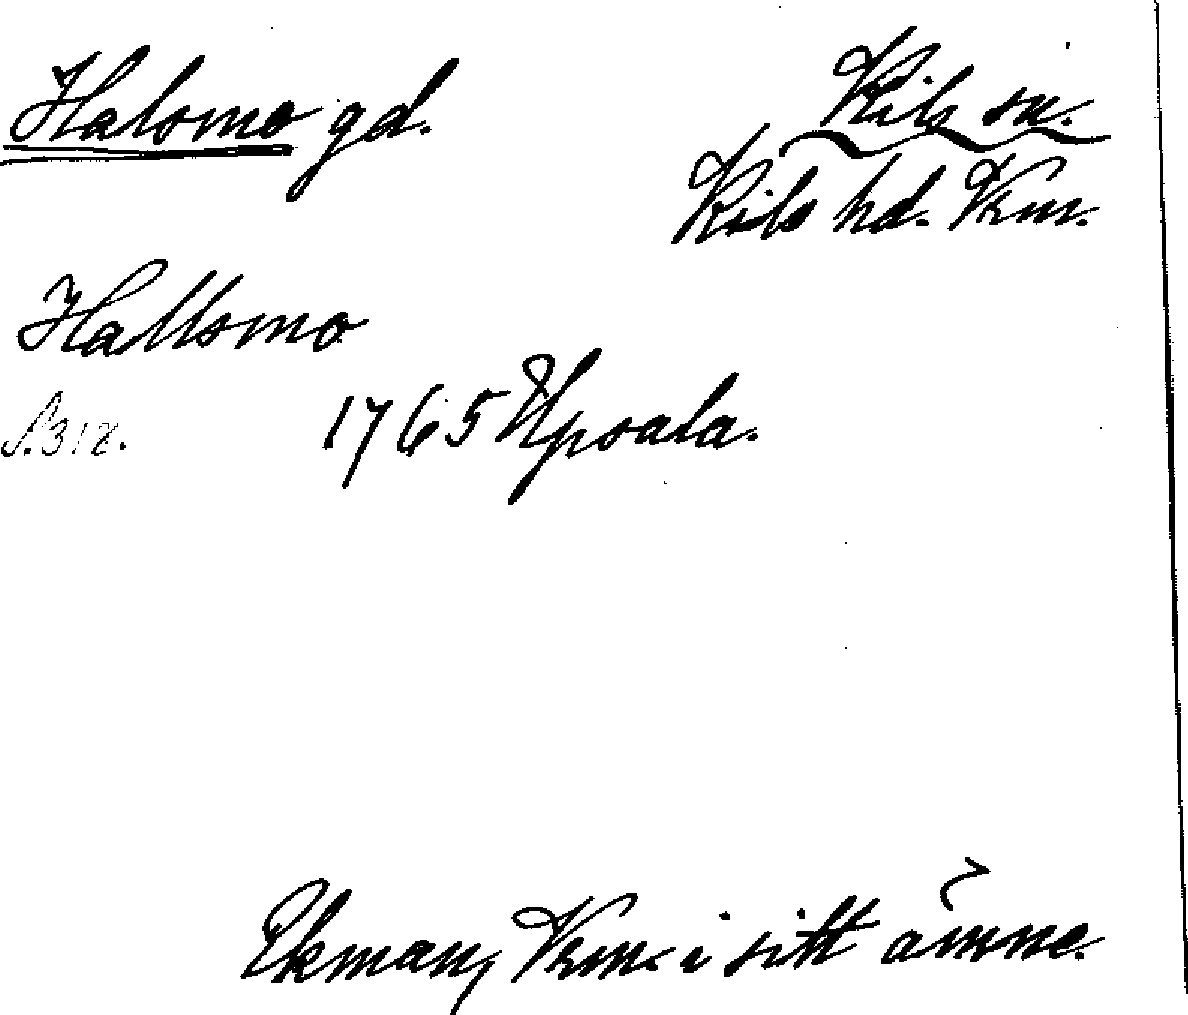 Halsmo gd.
Kils sn.
Kils hd. Vrm.
Hallsmo
S. 312. 1765 Upsala.
Ekman, Vrm. i sitt ämne.